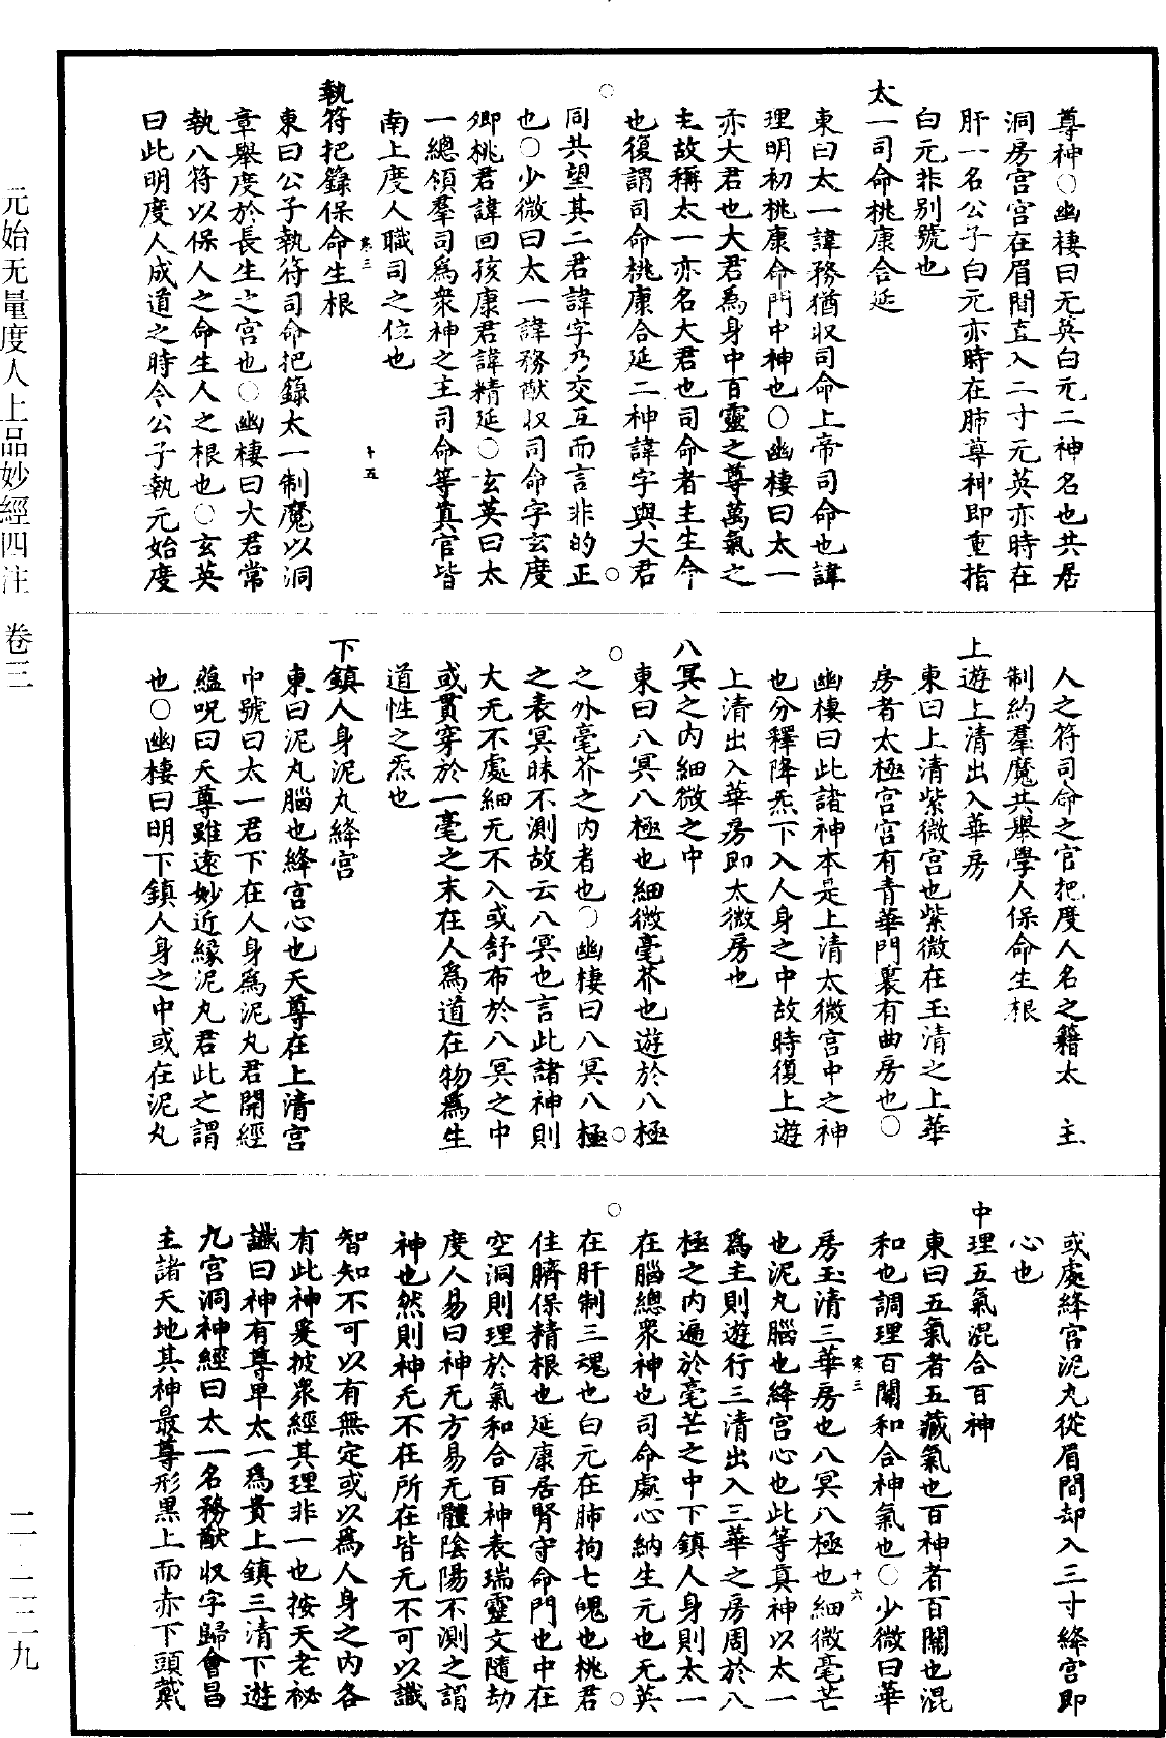 尊神○幽棲曰无英白元二神名也共居
洞房宮宮在眉間直入二寸元英亦時在
肝一名公子白元亦時在肺尊神即重指
白元非别號也
太一司命桃康合延
東曰太一諱務猶収司命上帝司命也諱
理明初桃康命門中神也○幽棲曰太一
亦大君也大君為身中百靈之尊萬氣之
主故稱太一亦名大君也司命者主生令
也復謂司命桃康合延二神諱字與大君
同共望其二君諱字乃交互而言非的正
也○少微曰太一諱務猷収司命字玄度
卿桃君諱回孩康君諱精延○玄英曰太
一總領羣司爲衆神之主司命等真官皆
南上度人職司之位也
卷三 十五
執符把籙保命生根
東曰公子執符司命把籙太一制魔以洞
章舉度於長生之宮也○幽棲曰大君常
執八符以保人之命生人之根也○玄英
曰此明度人成道之時令公子執元始度
人之符司命之官把度人名之籍太 主
制約羣魔共舉學人保命生根
上遊上清出入華房
東曰上清紫微宮也紫微在玉清之上華
房者太極宮宮有青華門裏有曲房也○
幽棲曰此諸神本是上清太微宮中之神
也分釋降炁下入人身之中故時復上遊
上清出入華房即太微房也
八冥之内細微之中
東曰八冥八極也細微毫芥也遊於八極
之外毫芥之内者也○幽棲曰八冥八極
之表冥昧不測故云八冥也言此諸神則
大无不處細无不入或舒布於八冥之中
或貫穿於一毫之末在人爲道在物爲生
道性之炁也
下鎮人身泥丸絳宮
東曰泥丸腦也絳宮心也天尊在上清宮
中號曰太一君下在人身爲泥丸君開經
蘊呪曰天尊雖遠妙近緣泥丸君此之謂
也○幽棲曰明下鎮人身之中或在泥丸
或處絳宮泥丸從眉間却入三寸絳宮即
心也
中理五氣混合百神
東曰五氣者五藏氣也百神者百關也混
和也調理百關和合神氣也○少微曰華
房玉清三華房也八冥八極也細微毫芒
卷三 十六
也泥丸腦也絳宮心也此等真神以太一
爲主則遊行三清出入三華之房周於八
極之内遍於毫芒之中下鎮人身則太一
在腦總衆神也司命處心納生元也无英
在肝制三魂也白元在肺拘七魄也桃君
住臍保精根也延康居腎守命門也中在
空洞則理於氣和合百神表瑞靈文隨劫
度人易曰神无方易无體陰陽不測之謂
神也然則神无不在所在皆无不可以識
智知不可以有無定或以爲人身之内各
有此神爰披衆經其理非一也按天老祕
讖曰神有尊卑太一爲貴上鎮三清下遊
九宮洞神經曰太一名務猷収字歸會昌
主諸天地其神最尊形黒上而赤下頭戴
元始无量度人上品妙經四注 卷三
二-二二九